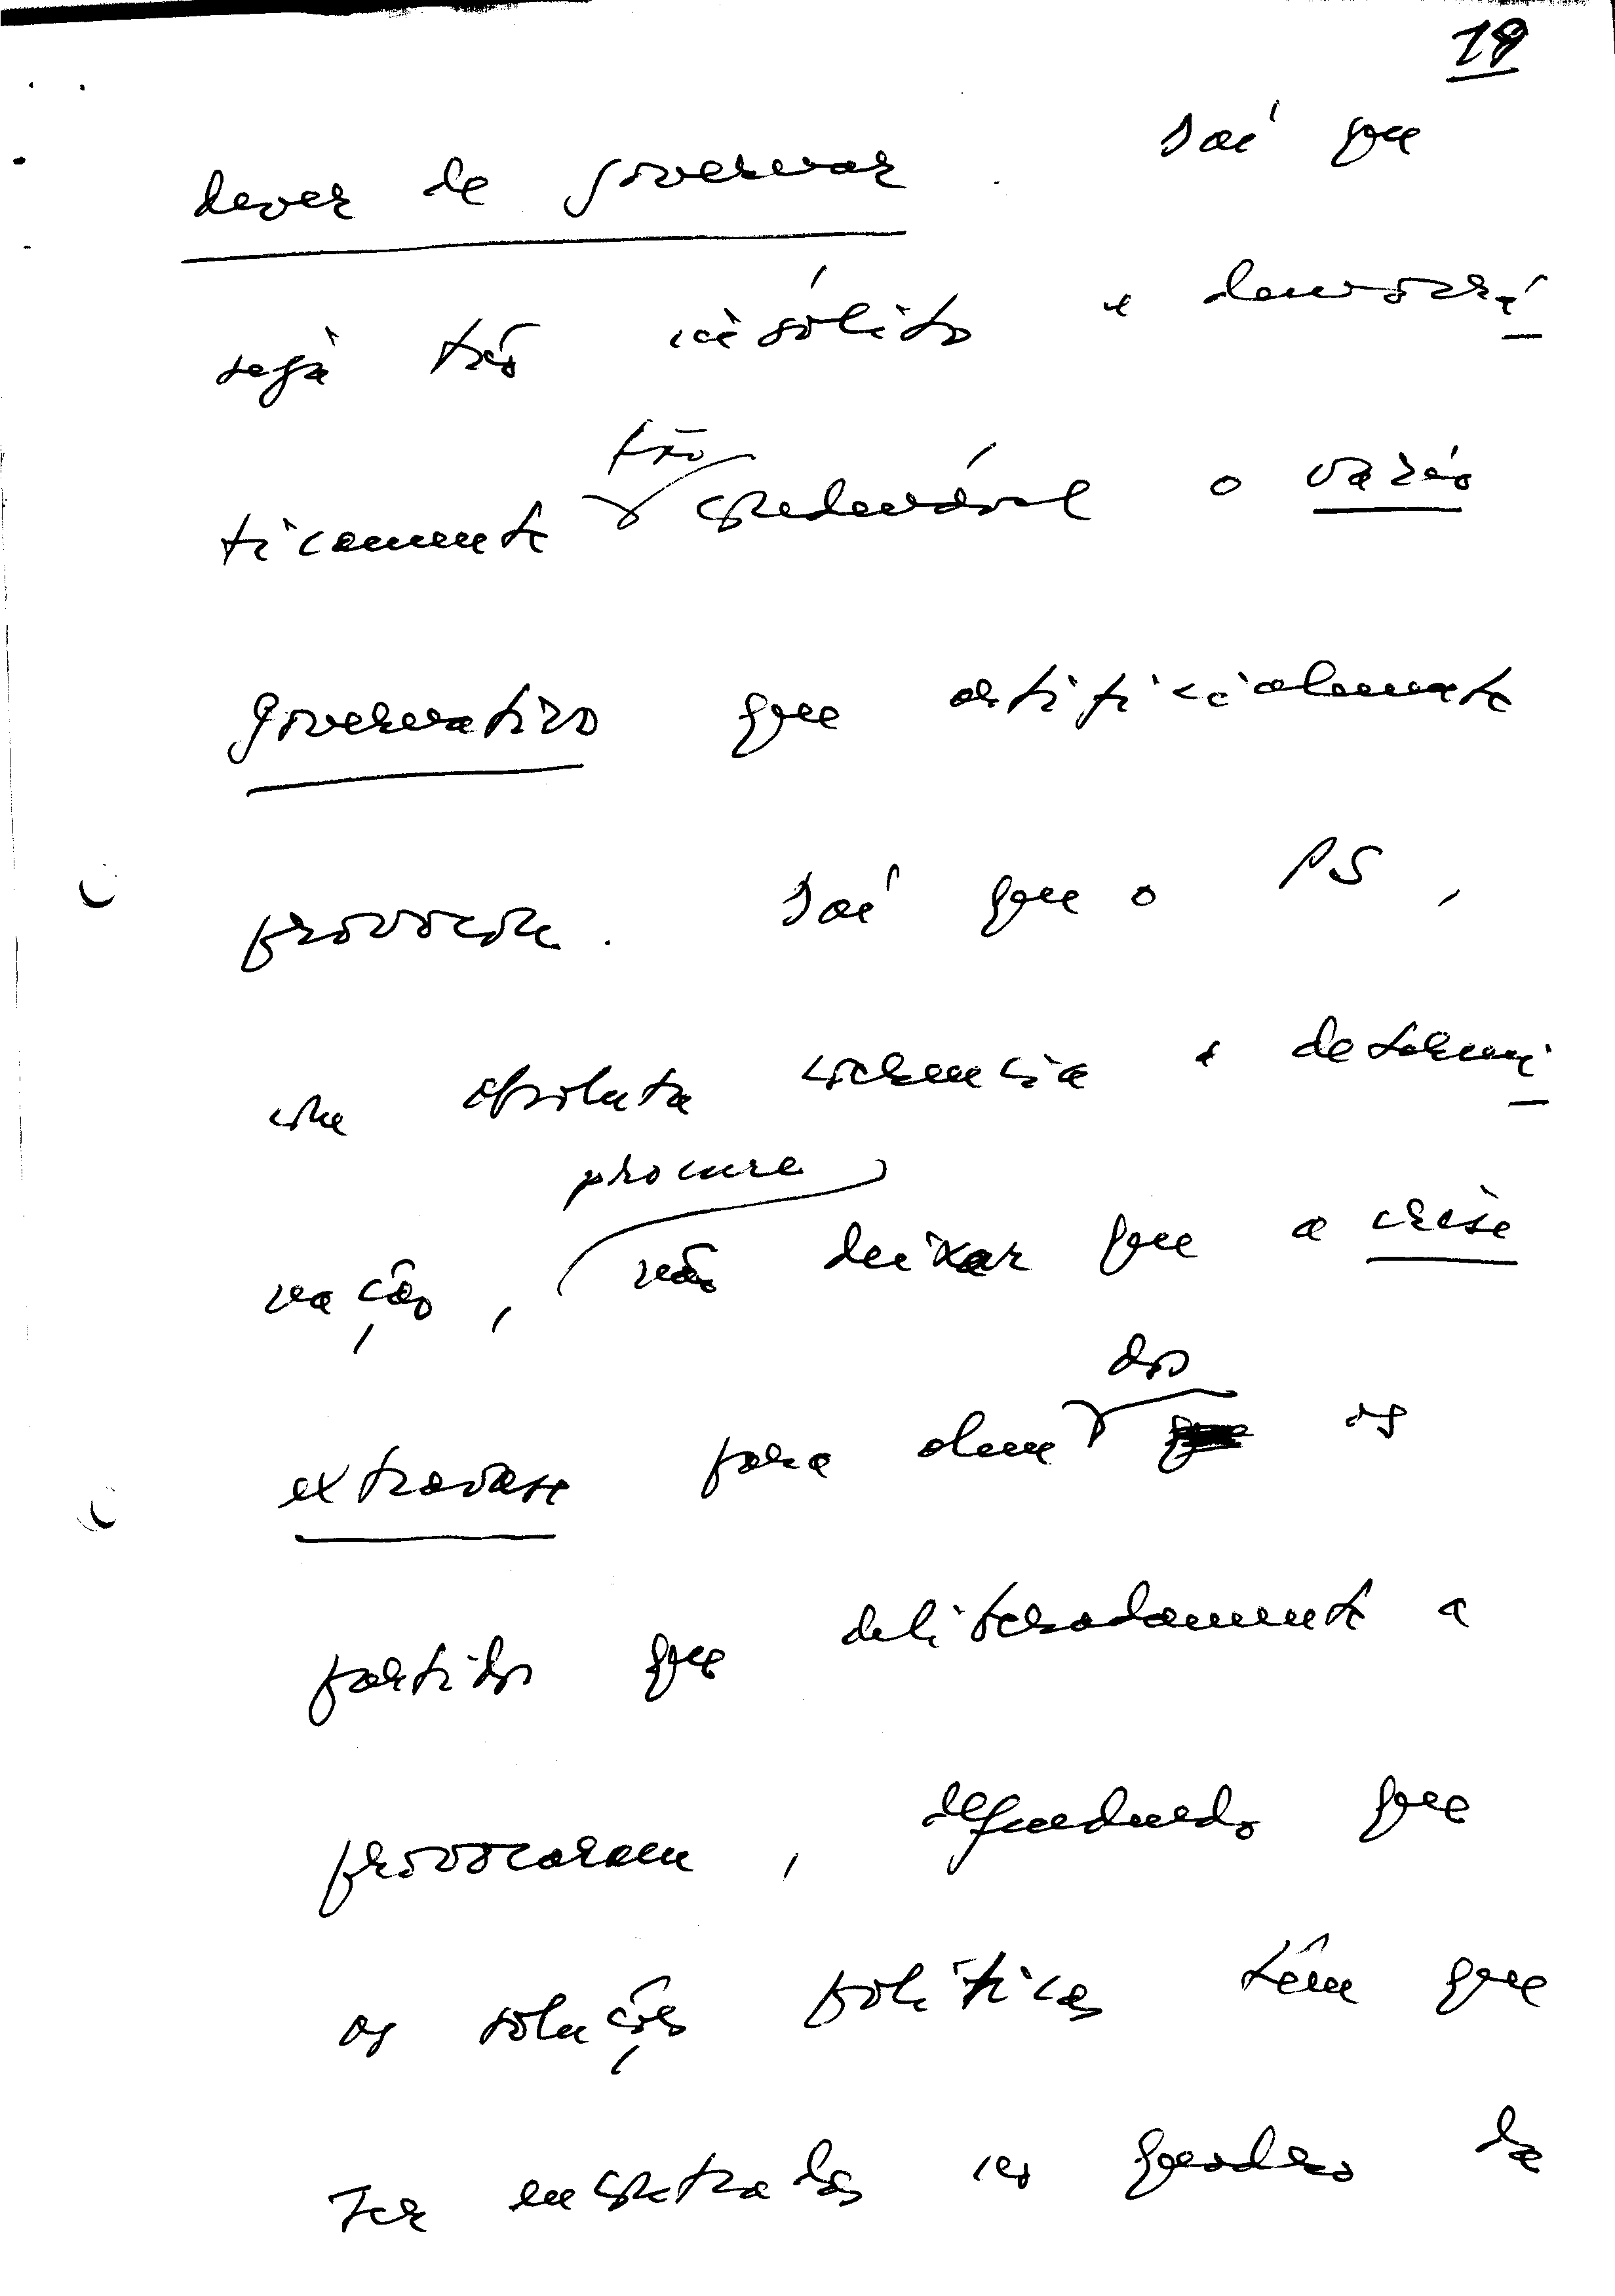 19
dever de governar. Daí que
seja tão insólito e democrá-
ticamente tão condenável o vazio
governativo que artificialmente
provocou. Daí que o PS,
com absoluta coerência e determi-
nação, procure não deixar que a crise
extravase para além dos os
partidos que deliberadamente a
provocaram, defendendo que
as soluções políticas têm que
ser encontradas no quadro da